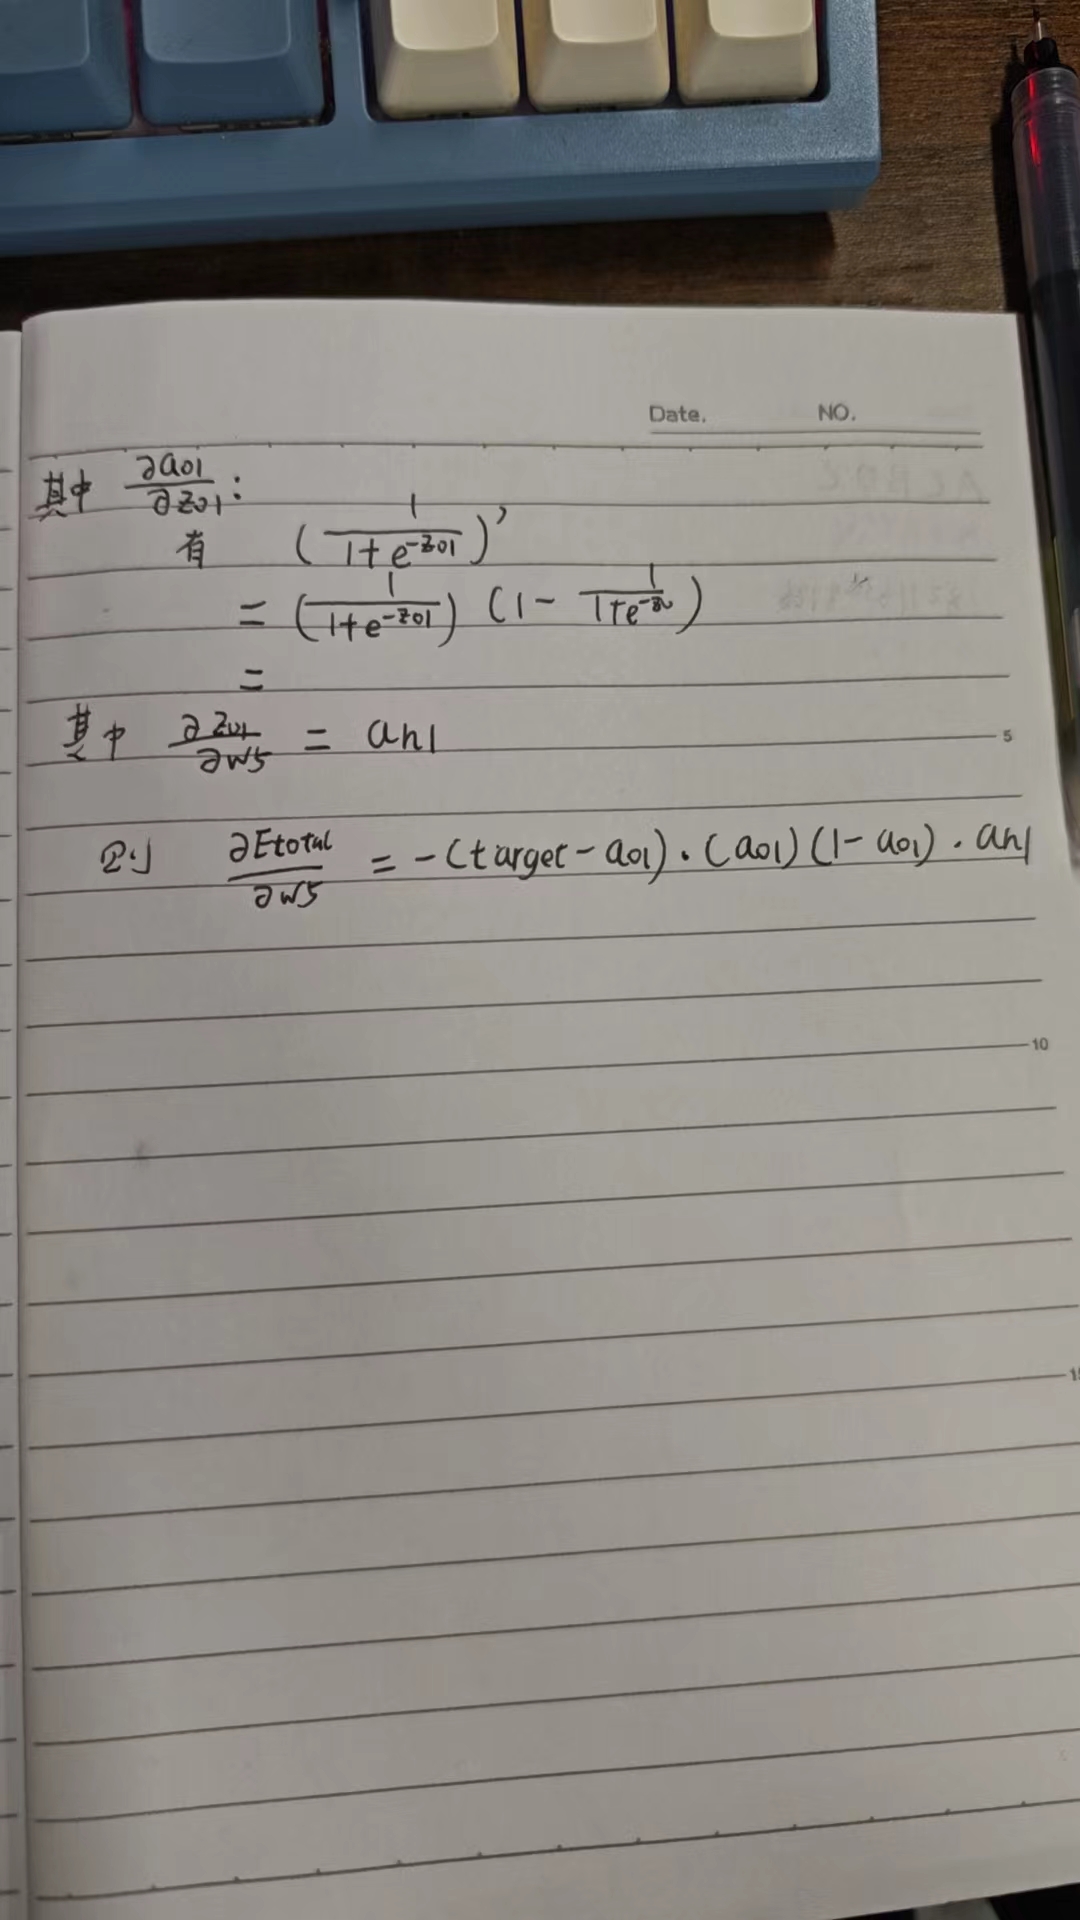 Date. NO.
其中 ∂ao1/∂zo1:
有 (1/(1+e^-zo1))'
= (1/(1+e^-zo1)) (1 - 1/(1+e^-zo1))
=
其中 ∂zo1/∂w5 = ah1
5
则 ∂Etotal/∂w5 = -(target - ao1)·(ao1)(1-ao1)·ah1
10